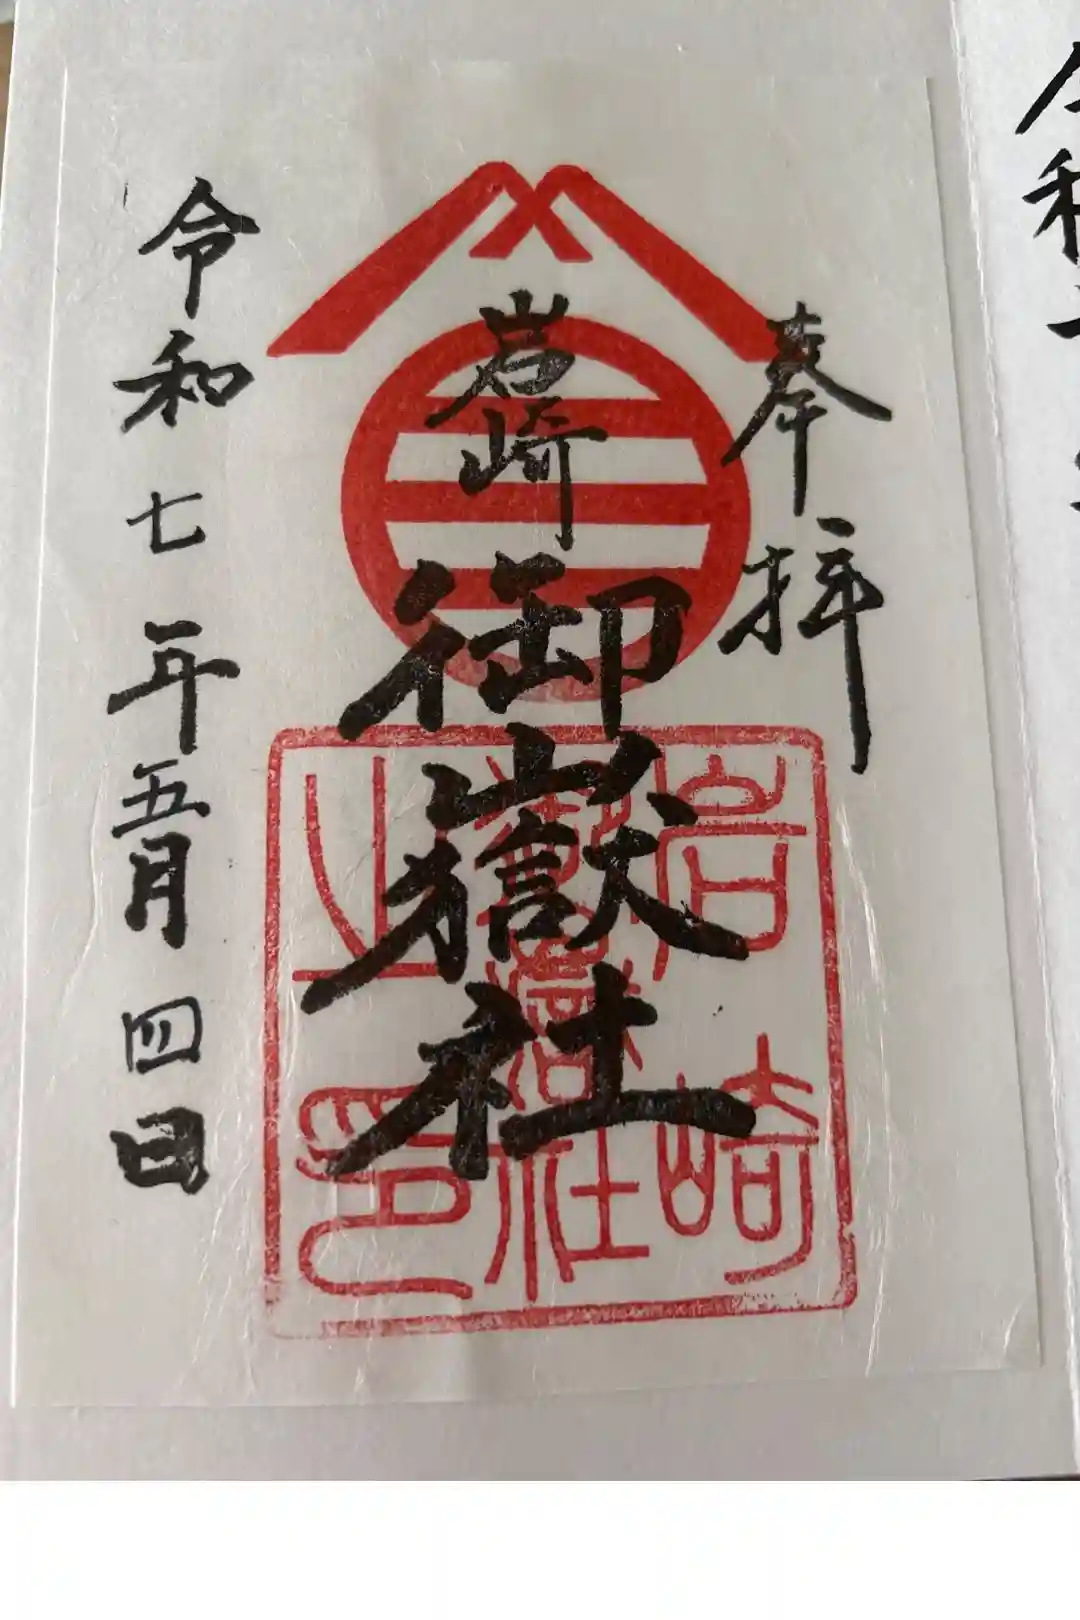 奉拝
岩崎
御嶽社
令和七年五月四日
岩崎
御嶽社
之印
令和